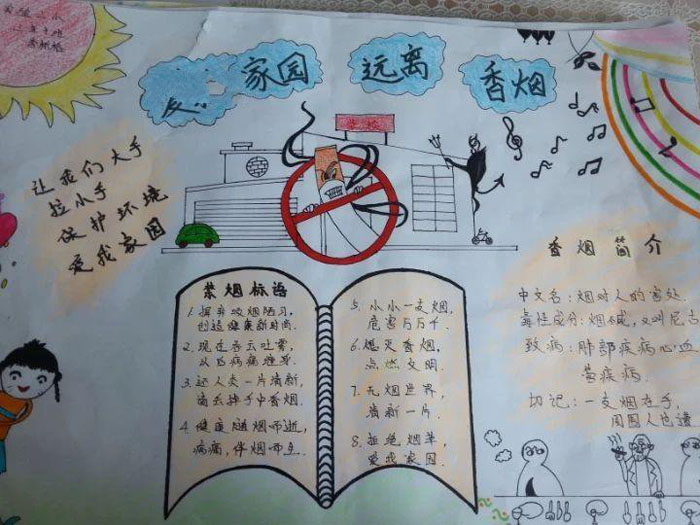 家园 远离 香烟
让我们大手
拉小手
保护环境
爱我家园
禁烟标语
1. 摒弃吸烟陋习,
创造健康新时尚.
2. 现在吞云吐雾,
以后病痛难受.
3. 还人类一片清新,
请丢掉手中香烟.
4. 健康随烟而逝,
病痛,伴烟而生.
5. 小小一支烟,
危害万万千.
6. 熄灭香烟,
点燃文明.
7. 无烟世界,
清新一片.
8. 拒绝烟草,
爱我家园.
香烟简介
中文名:烟对人的害处.
毒性成分:烟碱,又叫尼古
致病:肺部疾病心血
管疾病.
切记:一支烟在手,
周围人也遭